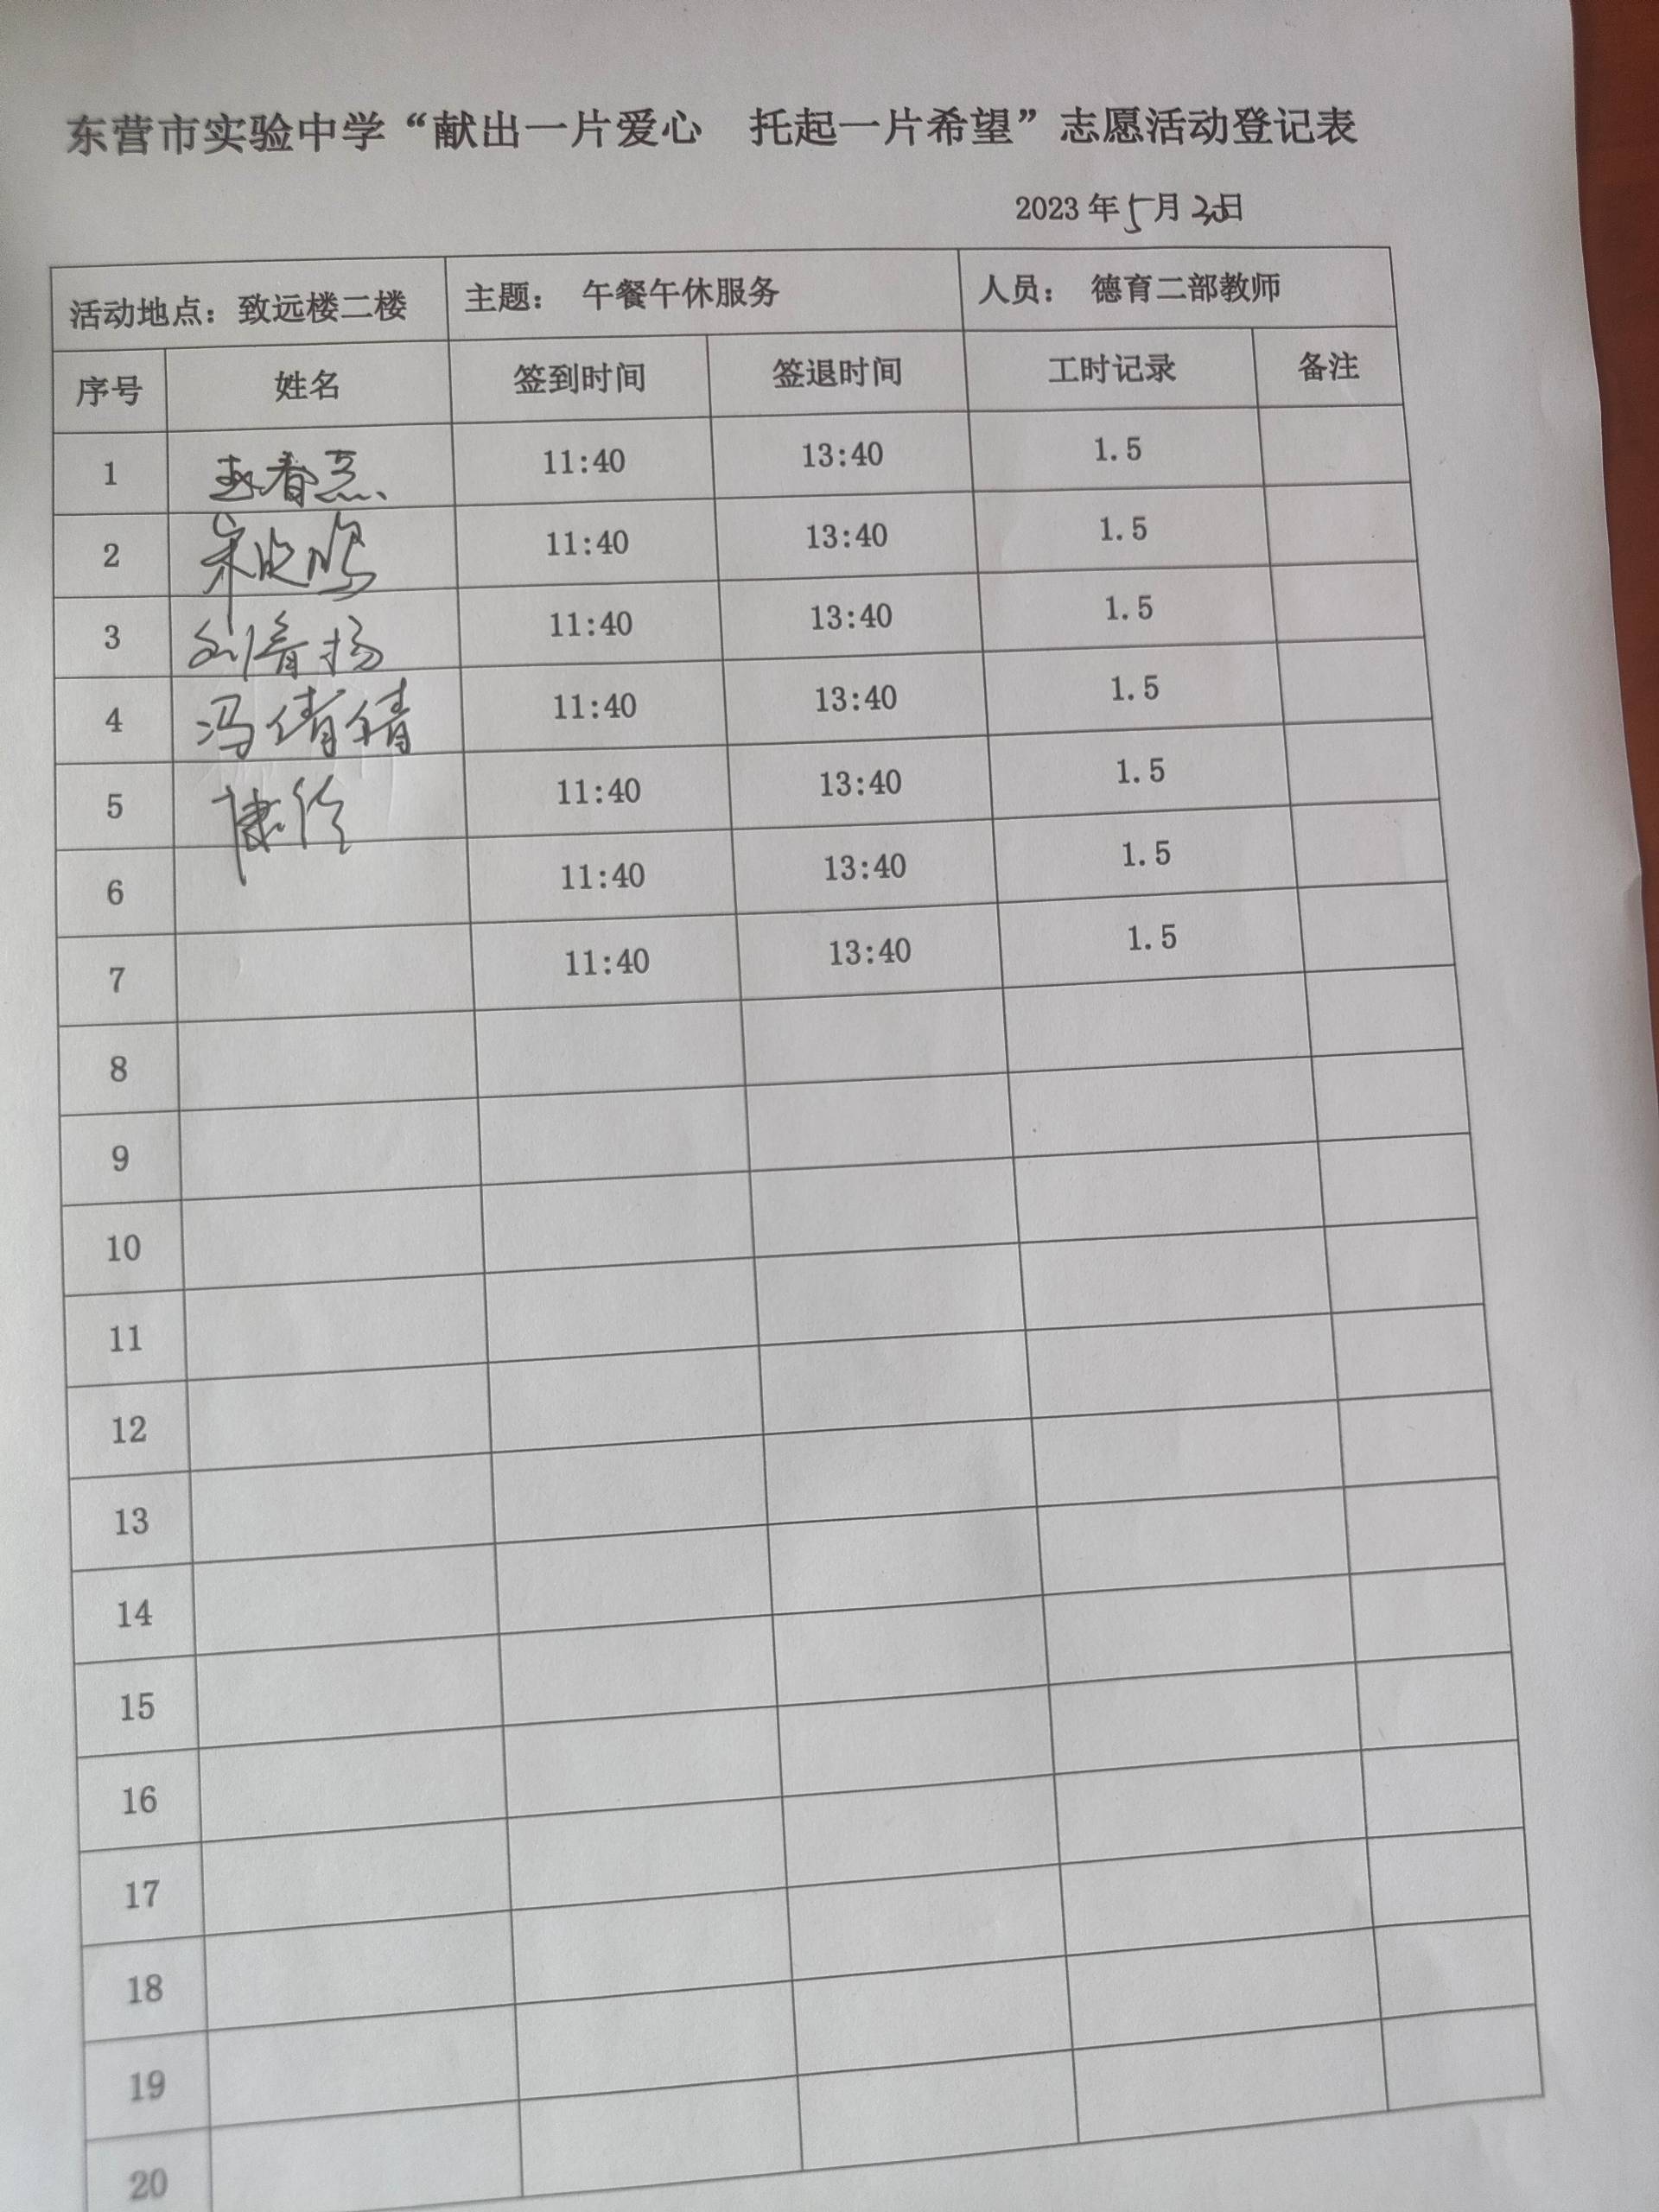 东营市实验中学“献出一片爱心　托起一片希望”志愿活动登记表
2023 年 5 月 日
活动地点：致远楼二楼 主题： 午餐午休服务 人员： 德育二部教师
序号 姓名 签到时间 签退时间 工时记录 备注
1 11:40 13:40 1.5
2 11:40 13:40 1.5
3 11:40 13:40 1.5
4 冯倩倩 11:40 13:40 1.5
5 11:40 13:40 1.5
6 11:40 13:40 1.5
7 11:40 13:40 1.5
8
9
10
11
12
13
14
15
16
17
18
19
20